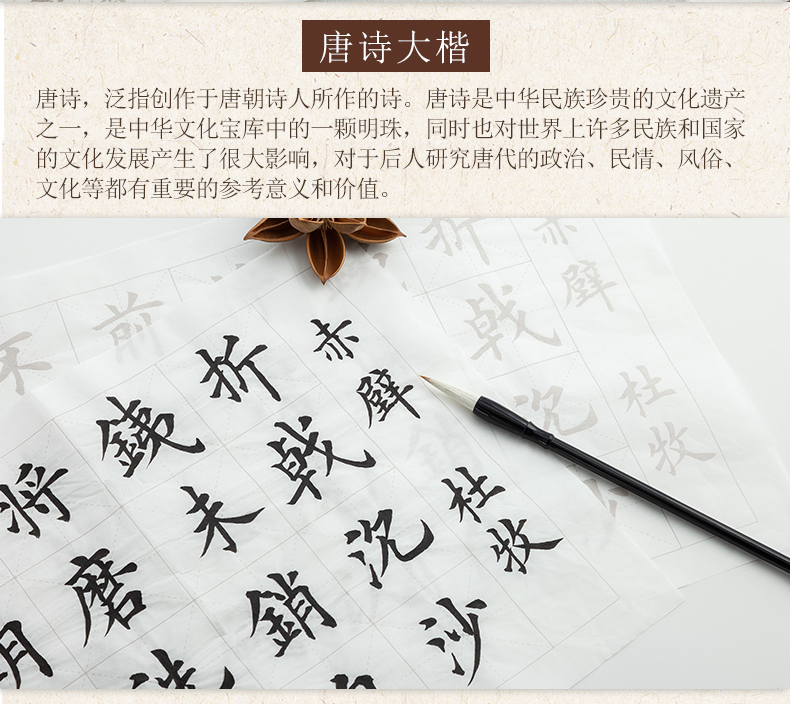 唐诗大楷
唐诗，泛指创作于唐朝诗人所作的诗。唐诗是中华民族珍贵的文化遗产
之一，是中华文化宝库中的一颗明珠，同时也对世界上许多民族和国家
的文化发展产生了很大影响，对于后人研究唐代的政治、民情、风俗、
文化等都有重要的参考意义和价值。
赤壁
杜牧
折戟沉沙
銕未銷
将磨洗
赤壁
杜牧
折戟沉
前